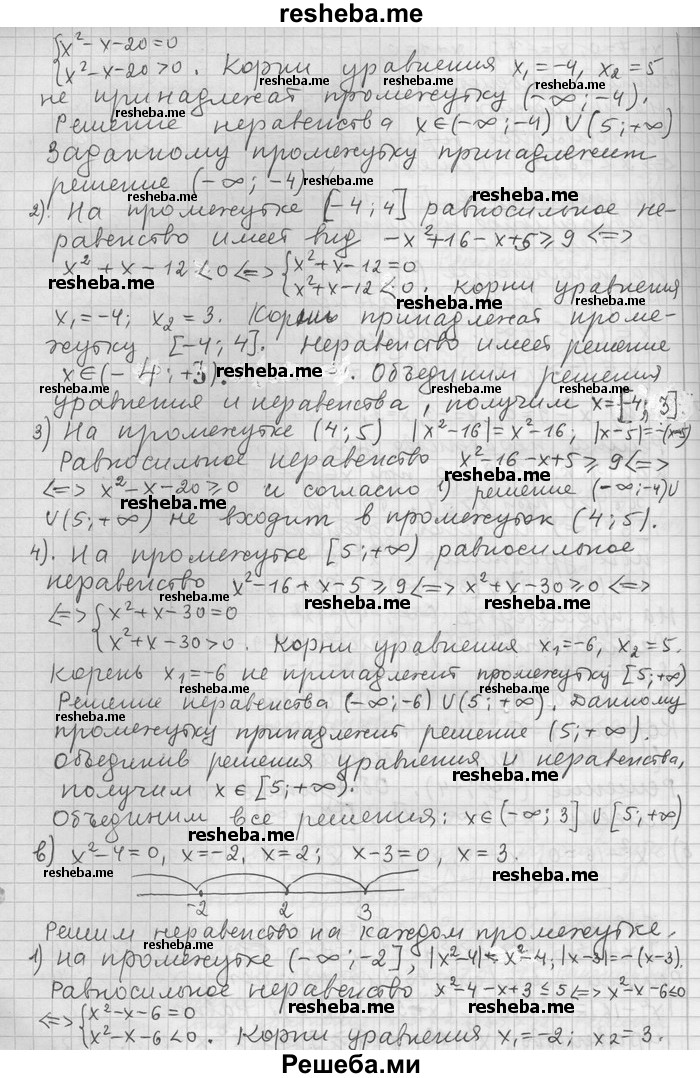 resheba.me
{x²-x-20=0
{x²-x-20>0. Корни уравнения x₁=-4, x₂=5
не принадлежат промежутку (-∞;-4).
Решение неравенства x∈(-∞;-4)∪(5;+∞)
Заданному промежутку принадлежит
решение (-∞;-4).
2). На промежутке [-4;4] равносильное не-
равенство имеет вид -x²+16-x+5⩾9 <=>
x²+x-12<0 <=> {x²+x-12=0
{x²+x-12<0. Корни уравнения
x₁=-4; x₂=3. Корни принадлежат проме-
жутку [-4;4]. Неравенство имеет решение
x∈(-4;+3). Объединим решения
уравнения и неравенства, получим x=[-4;3]
3) На промежутке (4;5) |x²-16|=x²-16; |x-5|=-(x-5)
Равносильное неравенство x²-16-x+5⩾9 <=>
<=> x²-x-20⩾0 и согласно 1) решение (-∞;-4)∪
∪(5;+∞) не входит в промежуток (4;5).
4). На промежутке [5;+∞) равносильное
неравенство x²-16+x-5⩾9 <=> x²+x-30⩾0 <=>
<=> {x²+x-30=0
{x²+x-30>0. Корни уравнения x₁=-6, x₂=5.
Корень x₁=-6 не принадлежит промежутку [5;+∞)
Решение неравенства (-∞;-6)∪(5;+∞). Данному
промежутку принадлежит решение (5;+∞).
Объединив решения уравнения и неравенства,
получим x∈[5;+∞).
Объединим все решения: x∈(-∞;3]∪[5;+∞)
в) x²-4=0, x=-2, x=2; x-3=0, x=3.
-2 2 3
Решим неравенство на каждом промежутке.
1) На промежутке (-∞;-2], |x²-4|=x²-4; |x-3|=-(x-3).
Равносильное неравенство x²-4-x+3⩽5 <=> x²-x-6⩽0
<=> {x²-x-6=0
{x²-x-6<0. Корни уравнения x₁=-2; x₂=3.
Решеба.ми